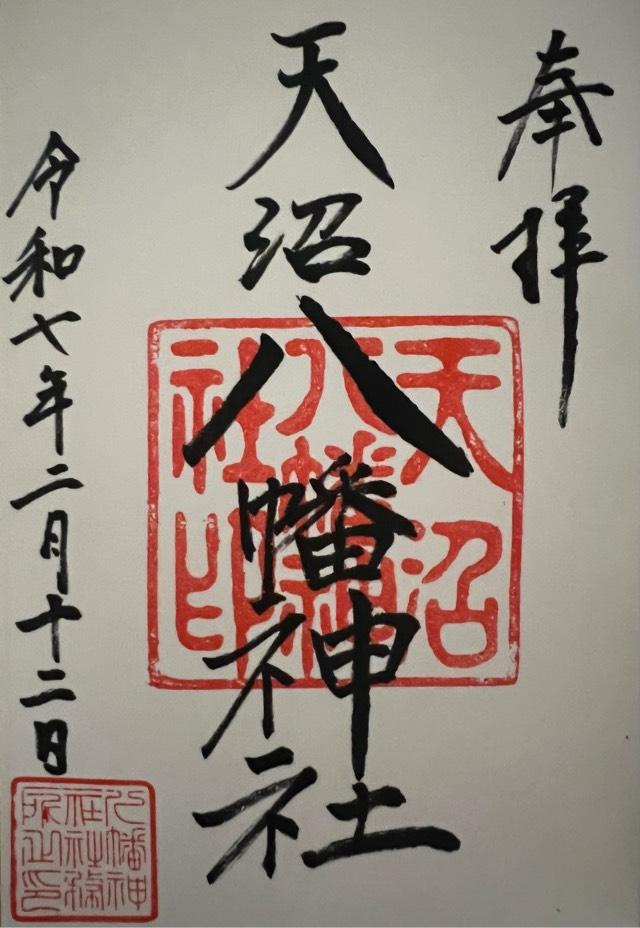 奉拝
天沼八幡神社
令和七年二月十二日
天沼
八幡神
社印
八幡神
社社務
所之印